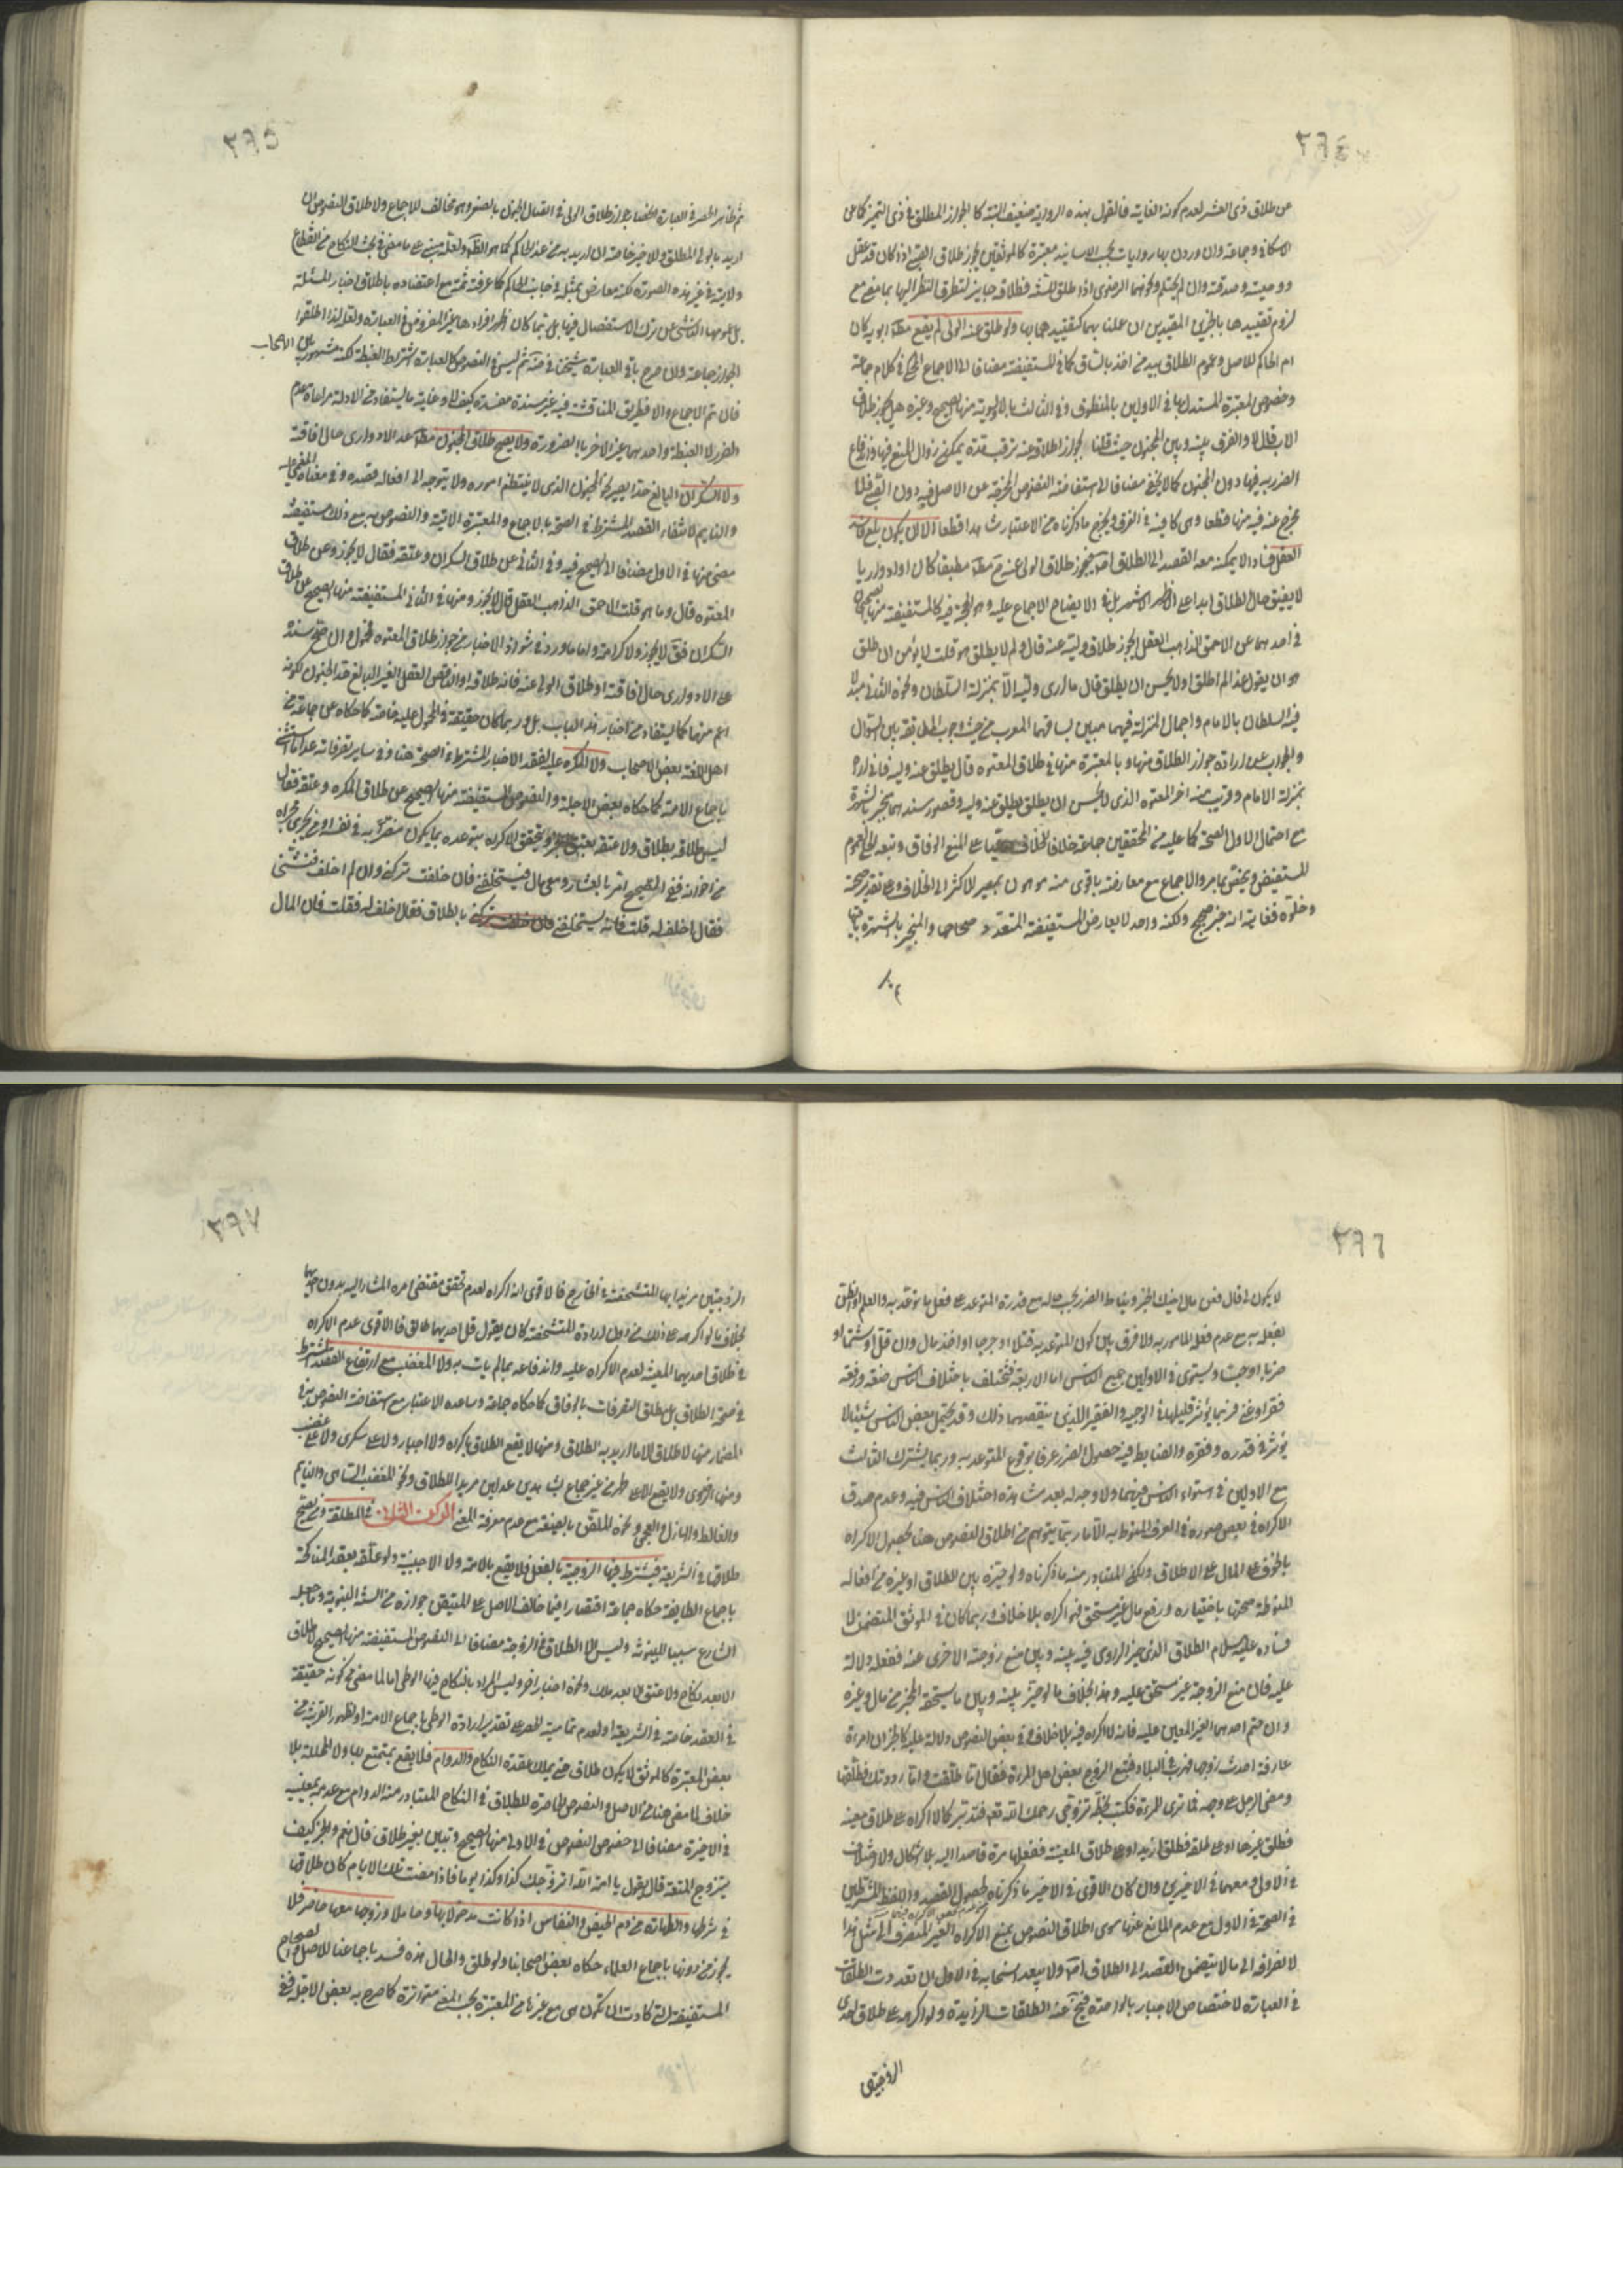 ٢٩٤
عن طلاق ذى العشر لعدم كونه الغاية فالقول بهذه الرواية ضعيف البتة كالجواز المطلق فى ذى التميز كما عن
الاسكافى وجماعة وان وردن بها روايات بحسب الاسانيد معتبرة كالموثقين يجوز طلاق الصبى اذا كان قد عقل
ووصيته وصدقته وان لم يحتلم ونحوهما الرضوى اذا طلق للسنة فطلاقه جايز لتطرق النظر اليها بما مضى مع
لزوم تقييدها بالخبرين المقيدين ان عملنا بهما كتقييدهما بها ولو طلق عنه الولى لم يقع مطلقا ابويه كان
ام الحاكم للاصل وعموم الطلاق بيد من اخذ بالساق كما فى المستفيضة مضافا الى الاجماع المحكى فى كلام جماعة
وخصوص المعتبرة المستدل بها فى الاولين بالمنطوق وفى الثالث بالاولوية منها الصحيح وغيره هل يجوز طلاق
الاب قال لا والفرق بينه وبين المجنون حيث قلنا بجواز الطلاق عنه ترقب مدة يمكن زوال المنع فيها واندفاع
الضرر به فيها دون المجنون كما لا يخفى مضافا الى استفاضة النصوص المخرجة عن الاصل فيه دون الصبى فلما
يخرج عنه فيه منها قطعا وهى كافية فى الفرق ويخرج ما ذكرناه من الاعتبار شاهدا قطعا الا ان يكون بلغ فاسد
العقل فسادا لا يمكنه معه القصد الى الطلاق اصلا فيجوز طلاق الولى عنه ح مطلقا مطبقا كان او ادواريا
لا يفيق حال الطلاق ابدا على الاظهر الاشهر بل فى الايضاح الاجماع عليه وهو الحجة فيه كالمستفيضة منها الصحيحان
فى احدهما عن الاحمق الذاهب العقل يجوز طلاق وليه عنه قال ولم لا يطلق هو قلت لا يؤمن ان طلق
هو ان يقول غدا لم اطلق او لا يحسن ان يطلق قال ما ارى وليه الا بمنزلة السلطان ونحوه الثانى مبدلا
فيه السلطان بالامام واجمال المنزلة فيهما مبين بسياقهما المعرب من حيث وجوب المطابقة بين السؤال
والجواب عن ارادة جواز الطلاق منها وبالمعتبرة منها فى طلاق المعتوه قال يطلق عنه وليه فانى اراه
بمنزلة الامام وقريب منه اخر المعتوه الذى لا يحسن ان يطلق يطلق عنه وليه وقصور سندهما يجبر بالشهرة
مع احتمال الاول الصحة كما عليه من المحققين جماعة خلافا للخلاف على المنع الوفاق وتبعه الحلى لعموم
المستفيض ويختص بما مر والاجماع مع معارضته باقوى منه موهون بمصير الاكثر الى الخلاف وعلى تقدير صحته
وخلوه فغايته انه خبر صحيح ولكنه واحد لا يعارض المستفيضة المتعدد صحاحها والمنجبر بالشهرة باقيها
ثم
٢٩٥
ثم ظاهر الحصر فى العبارة اختصاص جواز طلاق الولى فى اتصال الجنون بالصغر وهو مخالف للاجماع ولاطلاق النصوص ان
اريد بالولى المطلق وللاخير خاصة ان اريد به من عدا الحاكم كما هو الظاهر ولعله مبنى على ما مضى فى بحث النكاح من انقطاع
ولايته فى غير هذه الصورة لكنه معارض بمثله فى جانب الحاكم كما عرفته ثمة مع اعتضاده باطلاق اخبار المسئلة
بل عمومها الناشى عن ترك الاستفصال فيها بل ربما كان اظهر افرادها غير المفروض فى العبارة ولعله لذا اطلقوا
الجواز جماعة وان صرح باقى العبارة شيخنا فى ضه ثم ليس فى النصوص كالعبارة اشتراط الغبطة لكنه مشهور بين الاصحاب
فان تم الاجماع والا فبطريق المناقشة فيه غير مسندة معضدة كيف لا وغاية ما يستفاد من الادلة مراعاة عدم
الضرر لا الغبطة واحدهما غير الاخر بالضرورة ولا يصح طلاق المجنون مطلقا عدا الادوارى حال افاقته
ولا السكران البالغ حدا يصير كالمجنون الذى لا ينتظم اموره ولا يتوجه الى افعاله قصده وفى معناه المغمى عليه
والنايم لانتفاء القصد المشترط فى الصحة بالاجماع والمعتبرة الاتية والنصوص به مع ذلك مستفيضة
مضى منها فى الاول مضافا الى الصحيح فيه وفى الثانى عن طلاق السكران وعتقه فقال لا يجوز وعن طلاق
المعتوه قال وما هو قلت الاحمق الذاهب العقل قال لا يجوز ومنها فى الثانى المستفيضة منها الصحيح عن طلاق
السكران فقال لا يجوز ولا كرامة واما ما ورد فى شواذ الاخبار من جواز طلاق المعتوه فمحمول وان صح سنده
على الادوارى حال افاقته او طلاق الولى عنه فانه طلاقه او الناقص العقل الغير البالغ حد الجنون لكونه
اعم منهما كما يستفاد من اخبار هذا الباب بل وربما كان حقيقة فى المحمول عليه خاصة كما حكاه عن جماعة من
اهل اللغة بعض الاصحاب ولا المكره عليه لفقد الاختيار المشترط فى الصحة هنا وفى ساير تصرفاته عدا ما استثنى
باجماع الامة كما حكاه بعض الاجلة والنصوص المستفيضة منها الصحيح عن طلاق المكره وعتقه فقال
ليس طلاقه بطلاق ولا عتقه بعتق ويتحقق الاكراه بتوعده بما يكون مضرا به فى نفسه او من يجرى مجراه
من اخوانه ففى الصحيح امر بالعشار ومعى مال فيستحلفنى فان حلفت تركنى وان لم احلف فتشنى
فقال احلف له قلت فانه يستحلفنى بالطلاق فقال احلف له فقلت فان المال
٢٩٦
لا يكون لى قال فعن مال اخيك الخبر ويناط الضرر بحسب حاله مع قدرة المتوعد على فعل ما توعد به والعلم او الظن
بفعله به مع عدم فعل المأمور به ولا فرق بين كون المتوعد به قتلا او جرحا او اخذ مال وان قل او شتما او
ضربا او حبسا ويستوى فى الاولين جميع الناس اما الاربعة فتختلف باختلاف الناس ضعة ورفعة
فقرا وغنى فربما يؤثر قليلها فى الوجيه والفقير اللذين ينقصهما ذلك وقد يحتمل بعض الناس شيئا لا
يؤثر فى قدره وفقره والضابط فيه حصول الضرر عرفا بوقوع المتوعد به وربما يشترك الثالث
مع الاولين فى استواء الناس فيهما ولا وجه له بعد مشاهدة اختلاف الناس فيه وعدم صدق
الاكراه فى بعض صوره فى العرف المنوط به الا ما ربما يتوهم من اطلاق النصوص هنا بحصول الاكراه
بالخوف على المال على الاطلاق ولكن المتبادر منه ما ذكرناه ولو خيره بين الطلاق او غيره من افعاله
المنوطة صحتها باختياره ودفع مال غير مستحق فهو اكراه بلا خلاف وربما كان فى الموثق المتضمن لا
فساده عليه السلام الطلاق الذى خير الراوى فيه بينه وبين منع زوجته الاخرى عنه ففعله دلالة
عليه فان منع الزوجة غير مستحق عليه وهذا بخلاف ما لو خير بينه وبين ما يستحقه المخبر من مال وغيره
وان حتم احدهما الغير المعين عليه فانه لا اكراه فيه بلا خلاف وفى بعض النصوص دلالة عليه كالخبر ان امراة
عارفة احدث زوجها فهرب فى البلاد فتبع الزوج بعض اهل المرءة فقال اما طلقت واما رددتك فطلقها
ومضى الرجل على وجهه فما ترى للمرءة فكتب بخطه تزوجى رحمك الله تعالى فتدبر كالاكراه على طلاق معينة
فطلق غيرها او على طلقة فطلق ازيد او على طلاق المعينة ففعلها مرة قاصدا اليه بلا اشكال ولا خلاف
فى الاول ومعهما فى الاخيرين وان كان الاقوى فى الاخير ما ذكرناه لحصول القصد واللفظ المشترطين
فى الصحة فى الاول مع عدم المانع عنها سوى اطلاق النصوص بمنع الاكراه الغير المنصرف الى مثل هذا
لانصرافه الى ما لا يتضمن القصد الى الطلاق اصلا ولا يبعد انسحابه فى الاول ان تعددت الطلقات
فى العبارة لاختصاص الاجبار بالواحدة فيخرج عنه الطلقات الزايدة ولو اكرهه على طلاق احدى
الزوجتين
٢٩٧
الزوجتين مريدا بها المتشخصة فى الخارج فالاقوى انه اكراه لعدم تحقق مقتضى امره المشار اليه بدون احديهما
بخلاف ما لو اكرهه على ذلك من دون ارادة المتشخصة كان يقول قل احديهما طالق فالاقوى عدم الاكراه
فى طلاق احديهما المعينة لعدم الاكراه عليه واندفاعه بما لم يات به ولا المغضب مع ارتفاع القصد المشترط
فى صحة الطلاق بل مطلق التصرفات بالوفاق كما حكاه جماعة وساعده الاعتبار مع استفاضة النصوص به فى
المضمار منها لا طلاق الا ما اريد به الطلاق ومنها لا يقع الطلاق باكراه ولا اجبار ولا على سكر ولا على غضب
ومنها الرضوى ولا يقع الا على طهر من غير جماع بشاهدين عدلين مريدا للطلاق ونحو المغضب الساهى والنايم
والغالط والهازل والعجمى ونحوه الملقن بالصيغة مع عدم معرفة المعنى الركن الثانى فى المطلقة ومن يصح
طلاقها فى الشريعة فيشترط فيها الزوجية بالفعل فلا يقع بالامة ولا الاجنبية ولو علقه بعقد المناكحة
باجماع الطايفة حكاه جماعة اقتصارا فيما خالف الاصل على المتيقن جوازه من السنة النبوية وما جعله
الشارع سببا للبينونة وليس الا الطلاق فى الزوجة مضافا الى النصوص المستفيضة منها الصحيح لا طلاق
الا بعد نكاح ولا عتق الا بعد ملك ونحوه اخبار اخر وليس المراد بالنكاح فيها الوطى اما لما مضى من كونه حقيقة
فى العقد خاصة فى الشريعة او لعدم تمامية الحصر على تقدير ارادة الوطى باجماع الامة او لظهور القرينة من
بعض المعتبرة كالموثق لا يكون طلاق حتى يملك عقدة النكاح والدوام فلا يقع بمتمتع بها ولا المحللة بلا
خلاف لما مضى هنا من الاصل والنصوص الحاصرة للطلاق فى النكاح المتبادر منه الدوام مع عدم بمعينية
فى الاخيرة مضافا الى خصوص النصوص فى الاولى منها الصحيح وتبين بغير طلاق قال نعم والخبر كيف
يتزوج المتعة قال يقول يا امة الله اتزوجك كذا وكذا يوما فاذا مضت تلك الايام كان طلاقها
فى شرطها والطهارة من دم الحيض والنفاس اذا كانت مدخولا بها وحاملا وزوجها معها حاضر فلا
يجوز من دونها باجماع العلماء حكاه بعض اصحابنا ولو طلق والحال هذه فسد باجماعنا للاصل والصحاح
المستفيضة التى كادت ان تكون هى مع غيرها من المعتبرة بحسب المعنى متواترة كما صرح به بعض الاجلة ففى